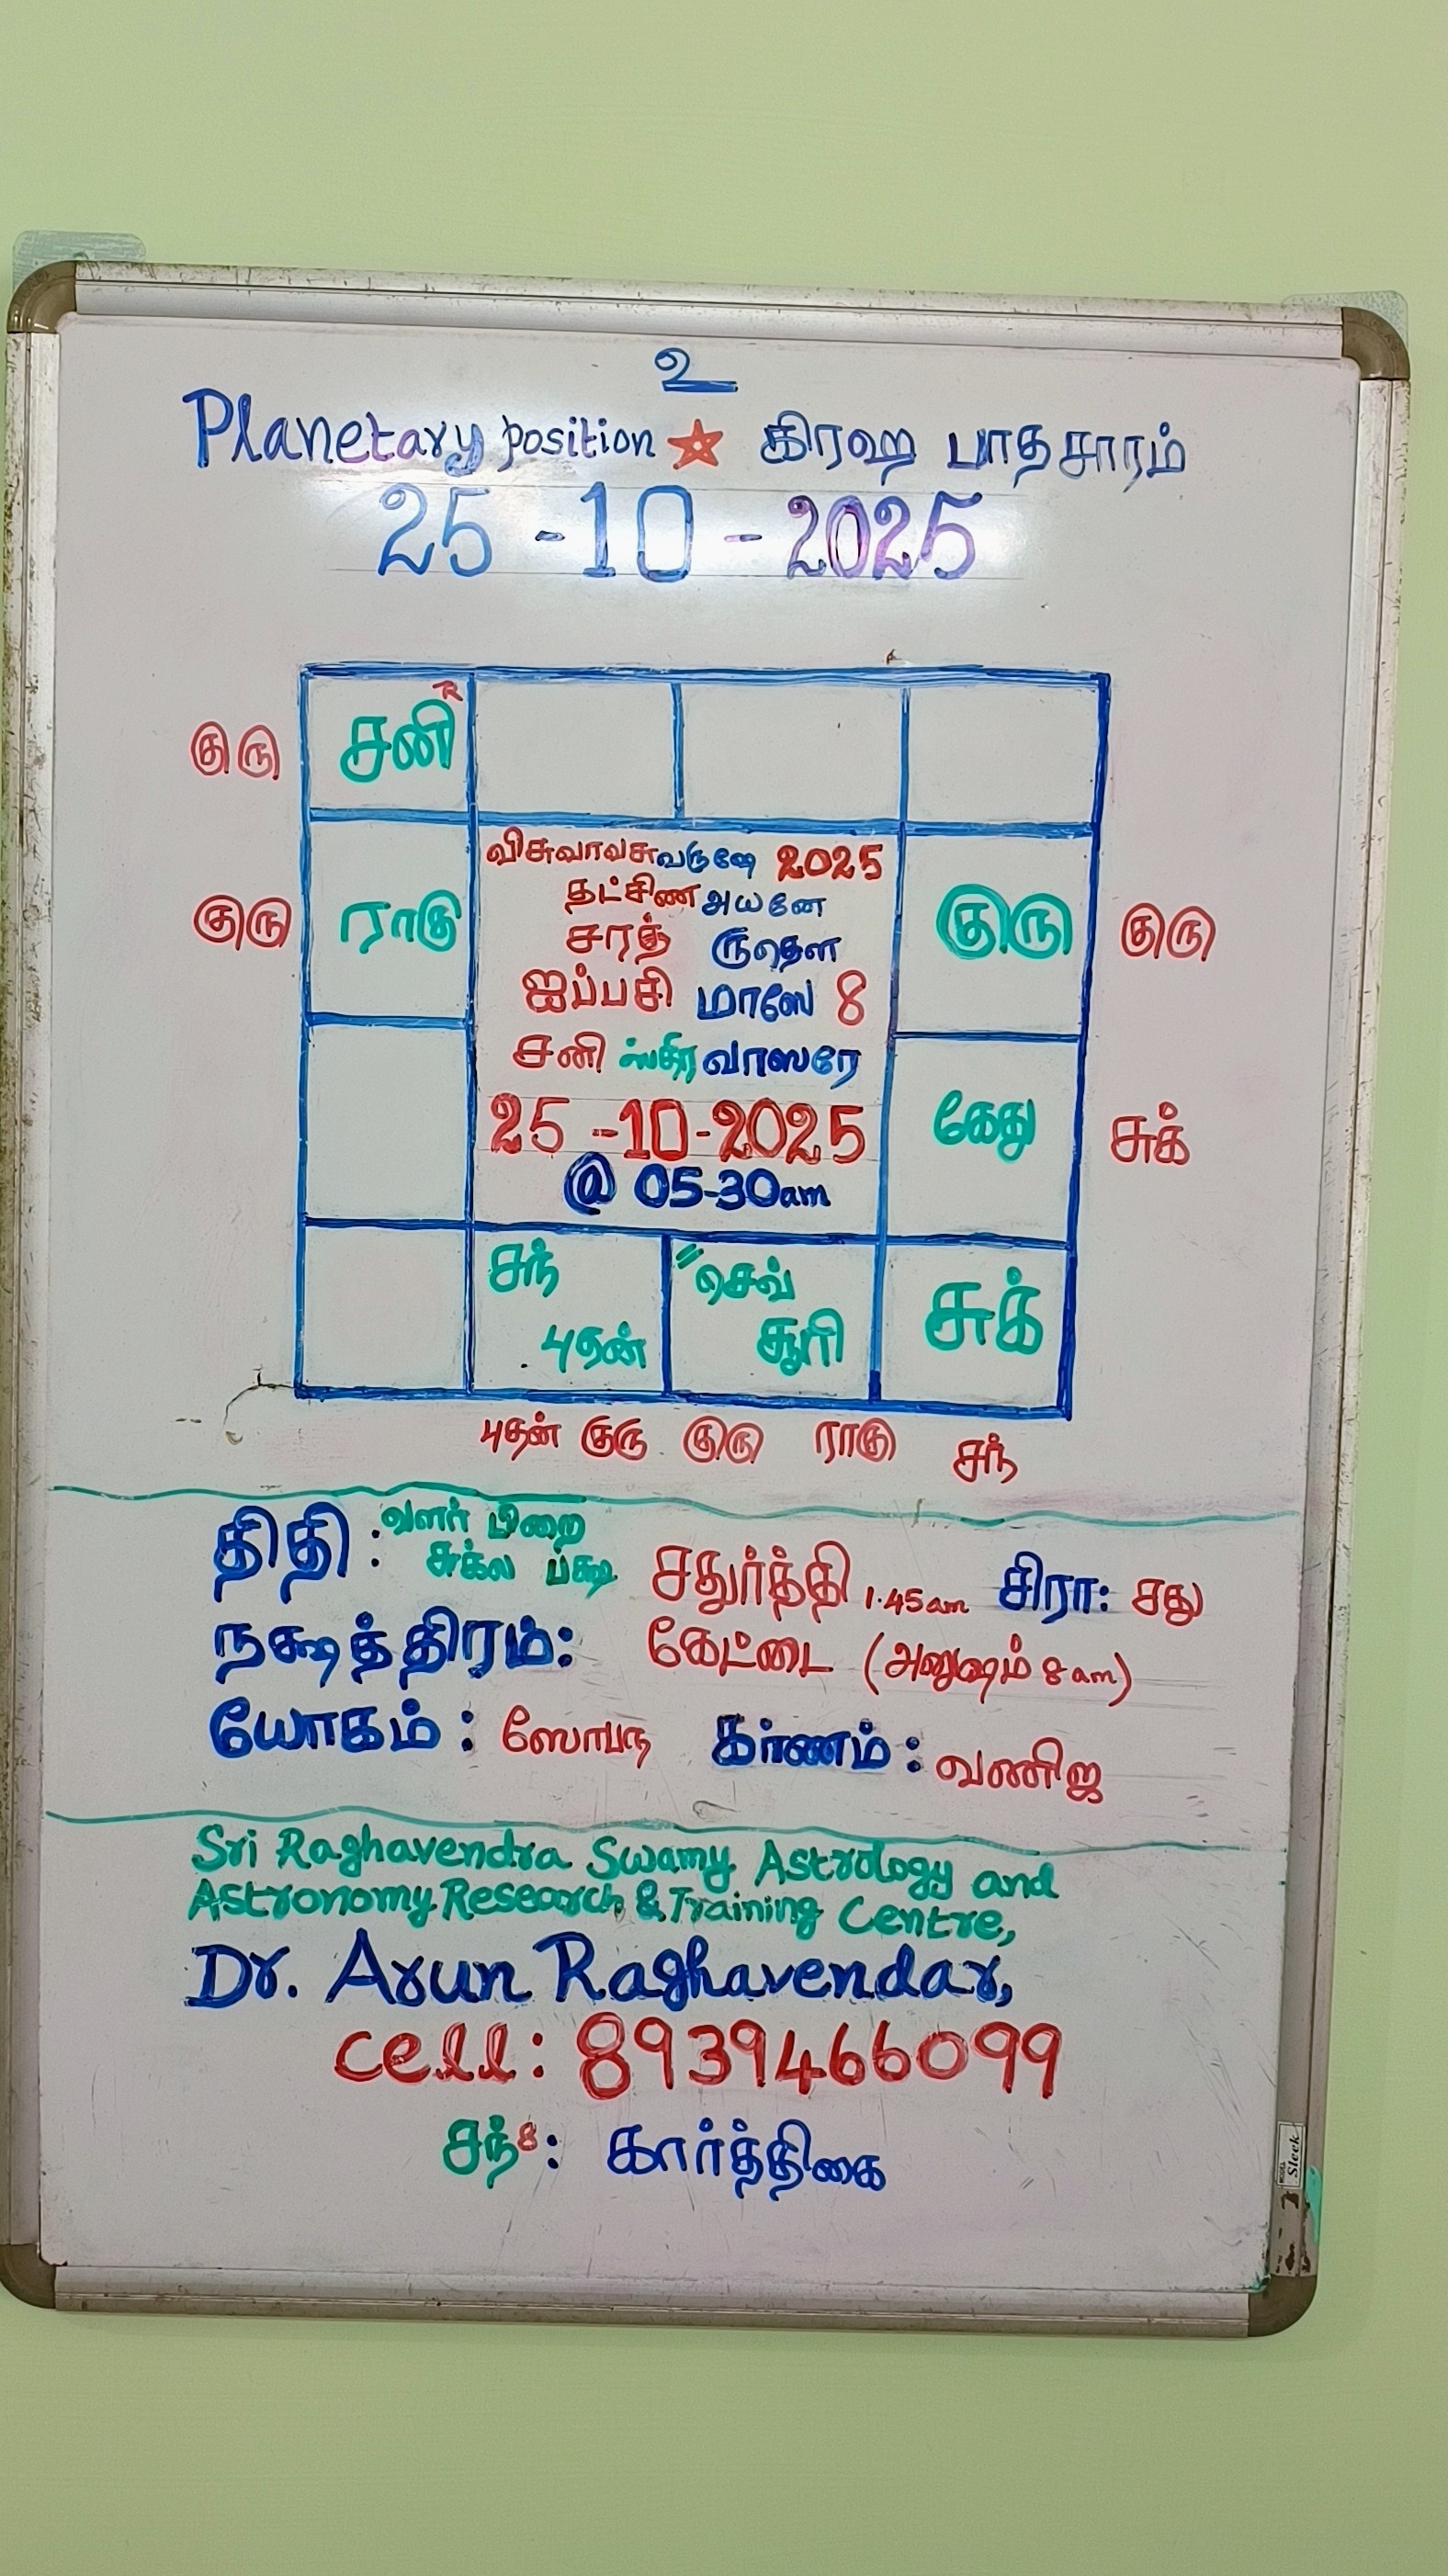 உ
Planetary position கிரஹ பாதசாரம்
25-10-2025
குரு சனி R
விசுவாவசுவருஷே 2025
தட்சிண அயனே
குரு ராகு சரத் ருதௌ குரு குரு
ஐப்பசி மாஸே 8
சனி ஸ்திர வாஸரே
25-10-2025 கேது சுக்
@ 05-30am
சந் "செவ் சுக்
புதன் சூரி
புதன் குரு குரு ராகு சந்
திதி : வளர் பிறை
சுக்ல பக்ஷ சதுர்த்தி 1.45am சிரா: சது
நக்ஷத்திரம்: கேட்டை (அனுஷம் 8am)
யோகம் : ஸோபந கர்ணம் : வணிஜ
Sri Raghavendra Swamy Astrology and
Astronomy Research & Training Centre,
Dr. Arun Raghavendar,
cell: 8939466099
சந்8: கார்த்திகை
MODEL
Sleek